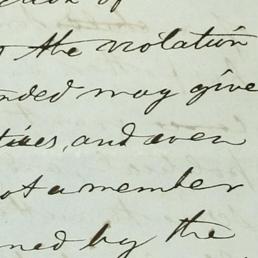 of
the violation
nded may give
tives, and even
not a member
ned by the